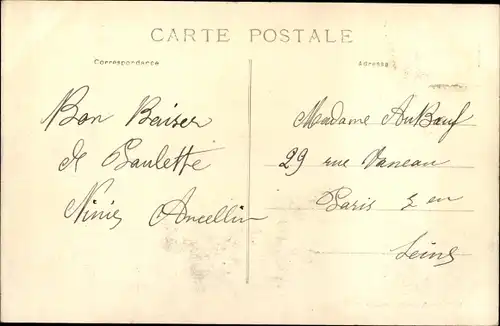 CARTE POSTALE
Correspondance
Adresse
Bon Baiser
de Paulette
Ninie Ancellin
Madame AuBœuf
29 rue Vaneau
Paris
Seine